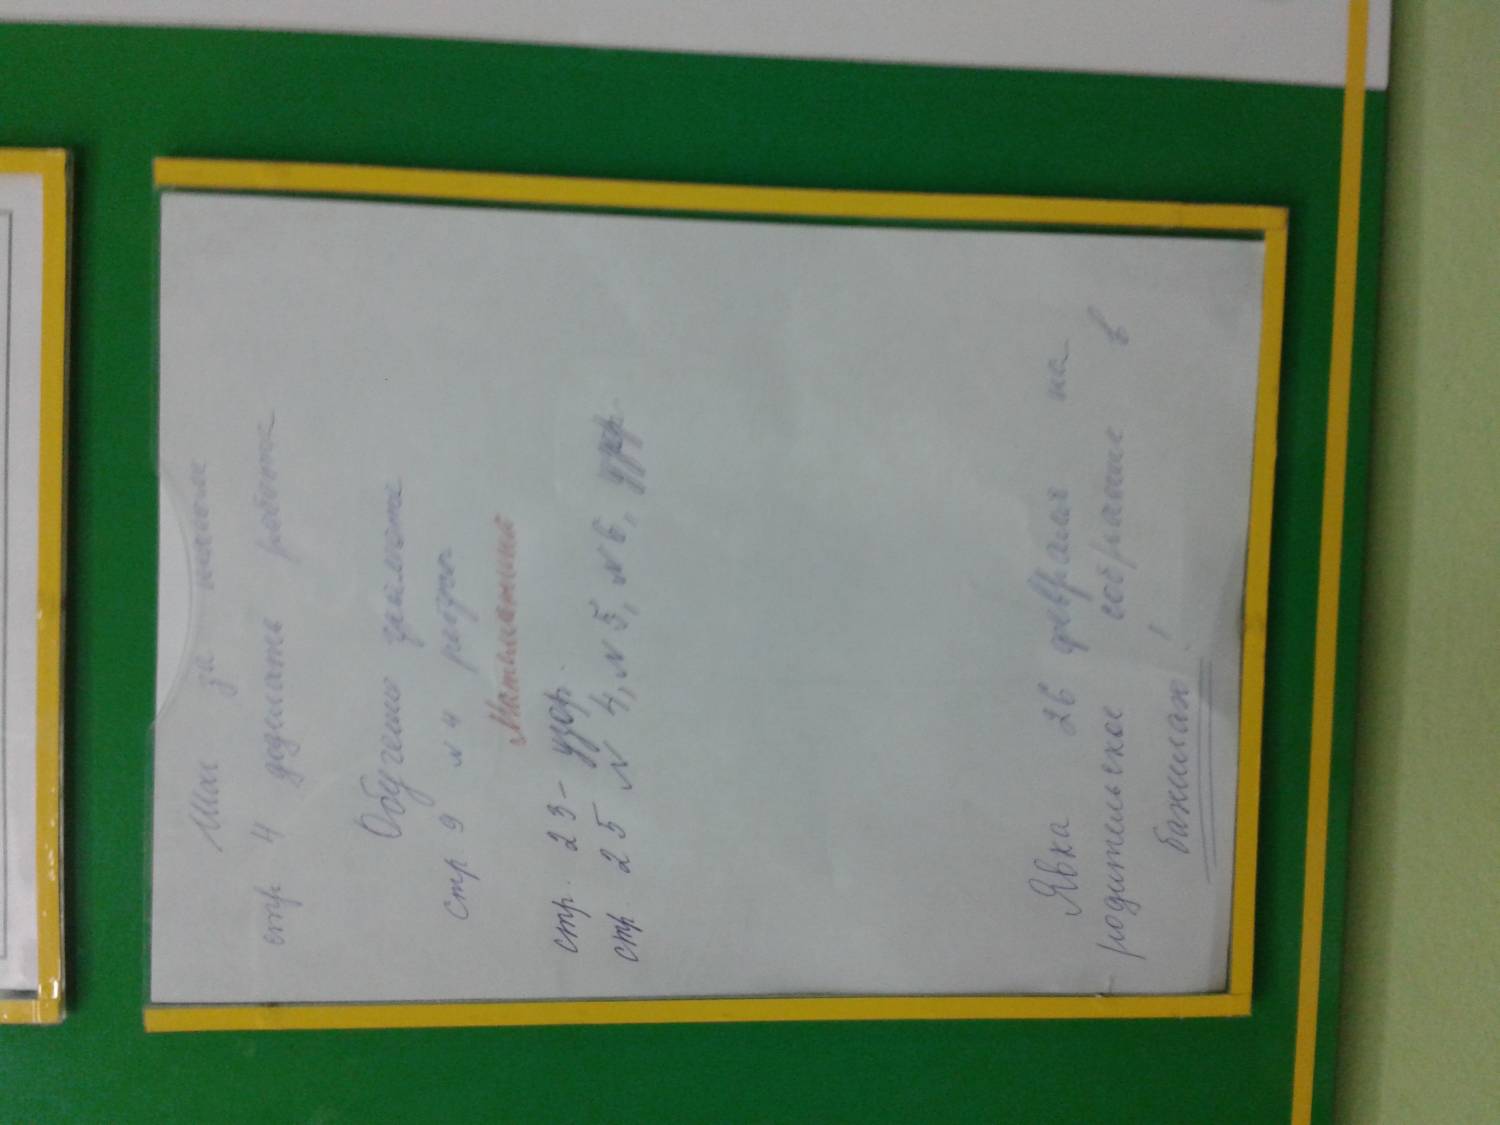 Шаг за шагом
стр. 4 доделать работа
Обучение грамоте
стр 9 N 4 
Математика
стр. 23 - узор.
стр. 25 N 4, N 5, N 6,
Явка 26 февраля на
родительское собрание в
бахилах!